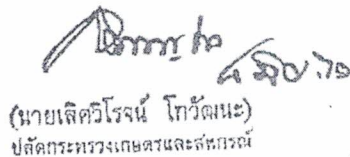 (นายเลิศวิโรจน์ โกวัฒนะ)
ปลัดกระทรวงเกษตรและสหกรณ์